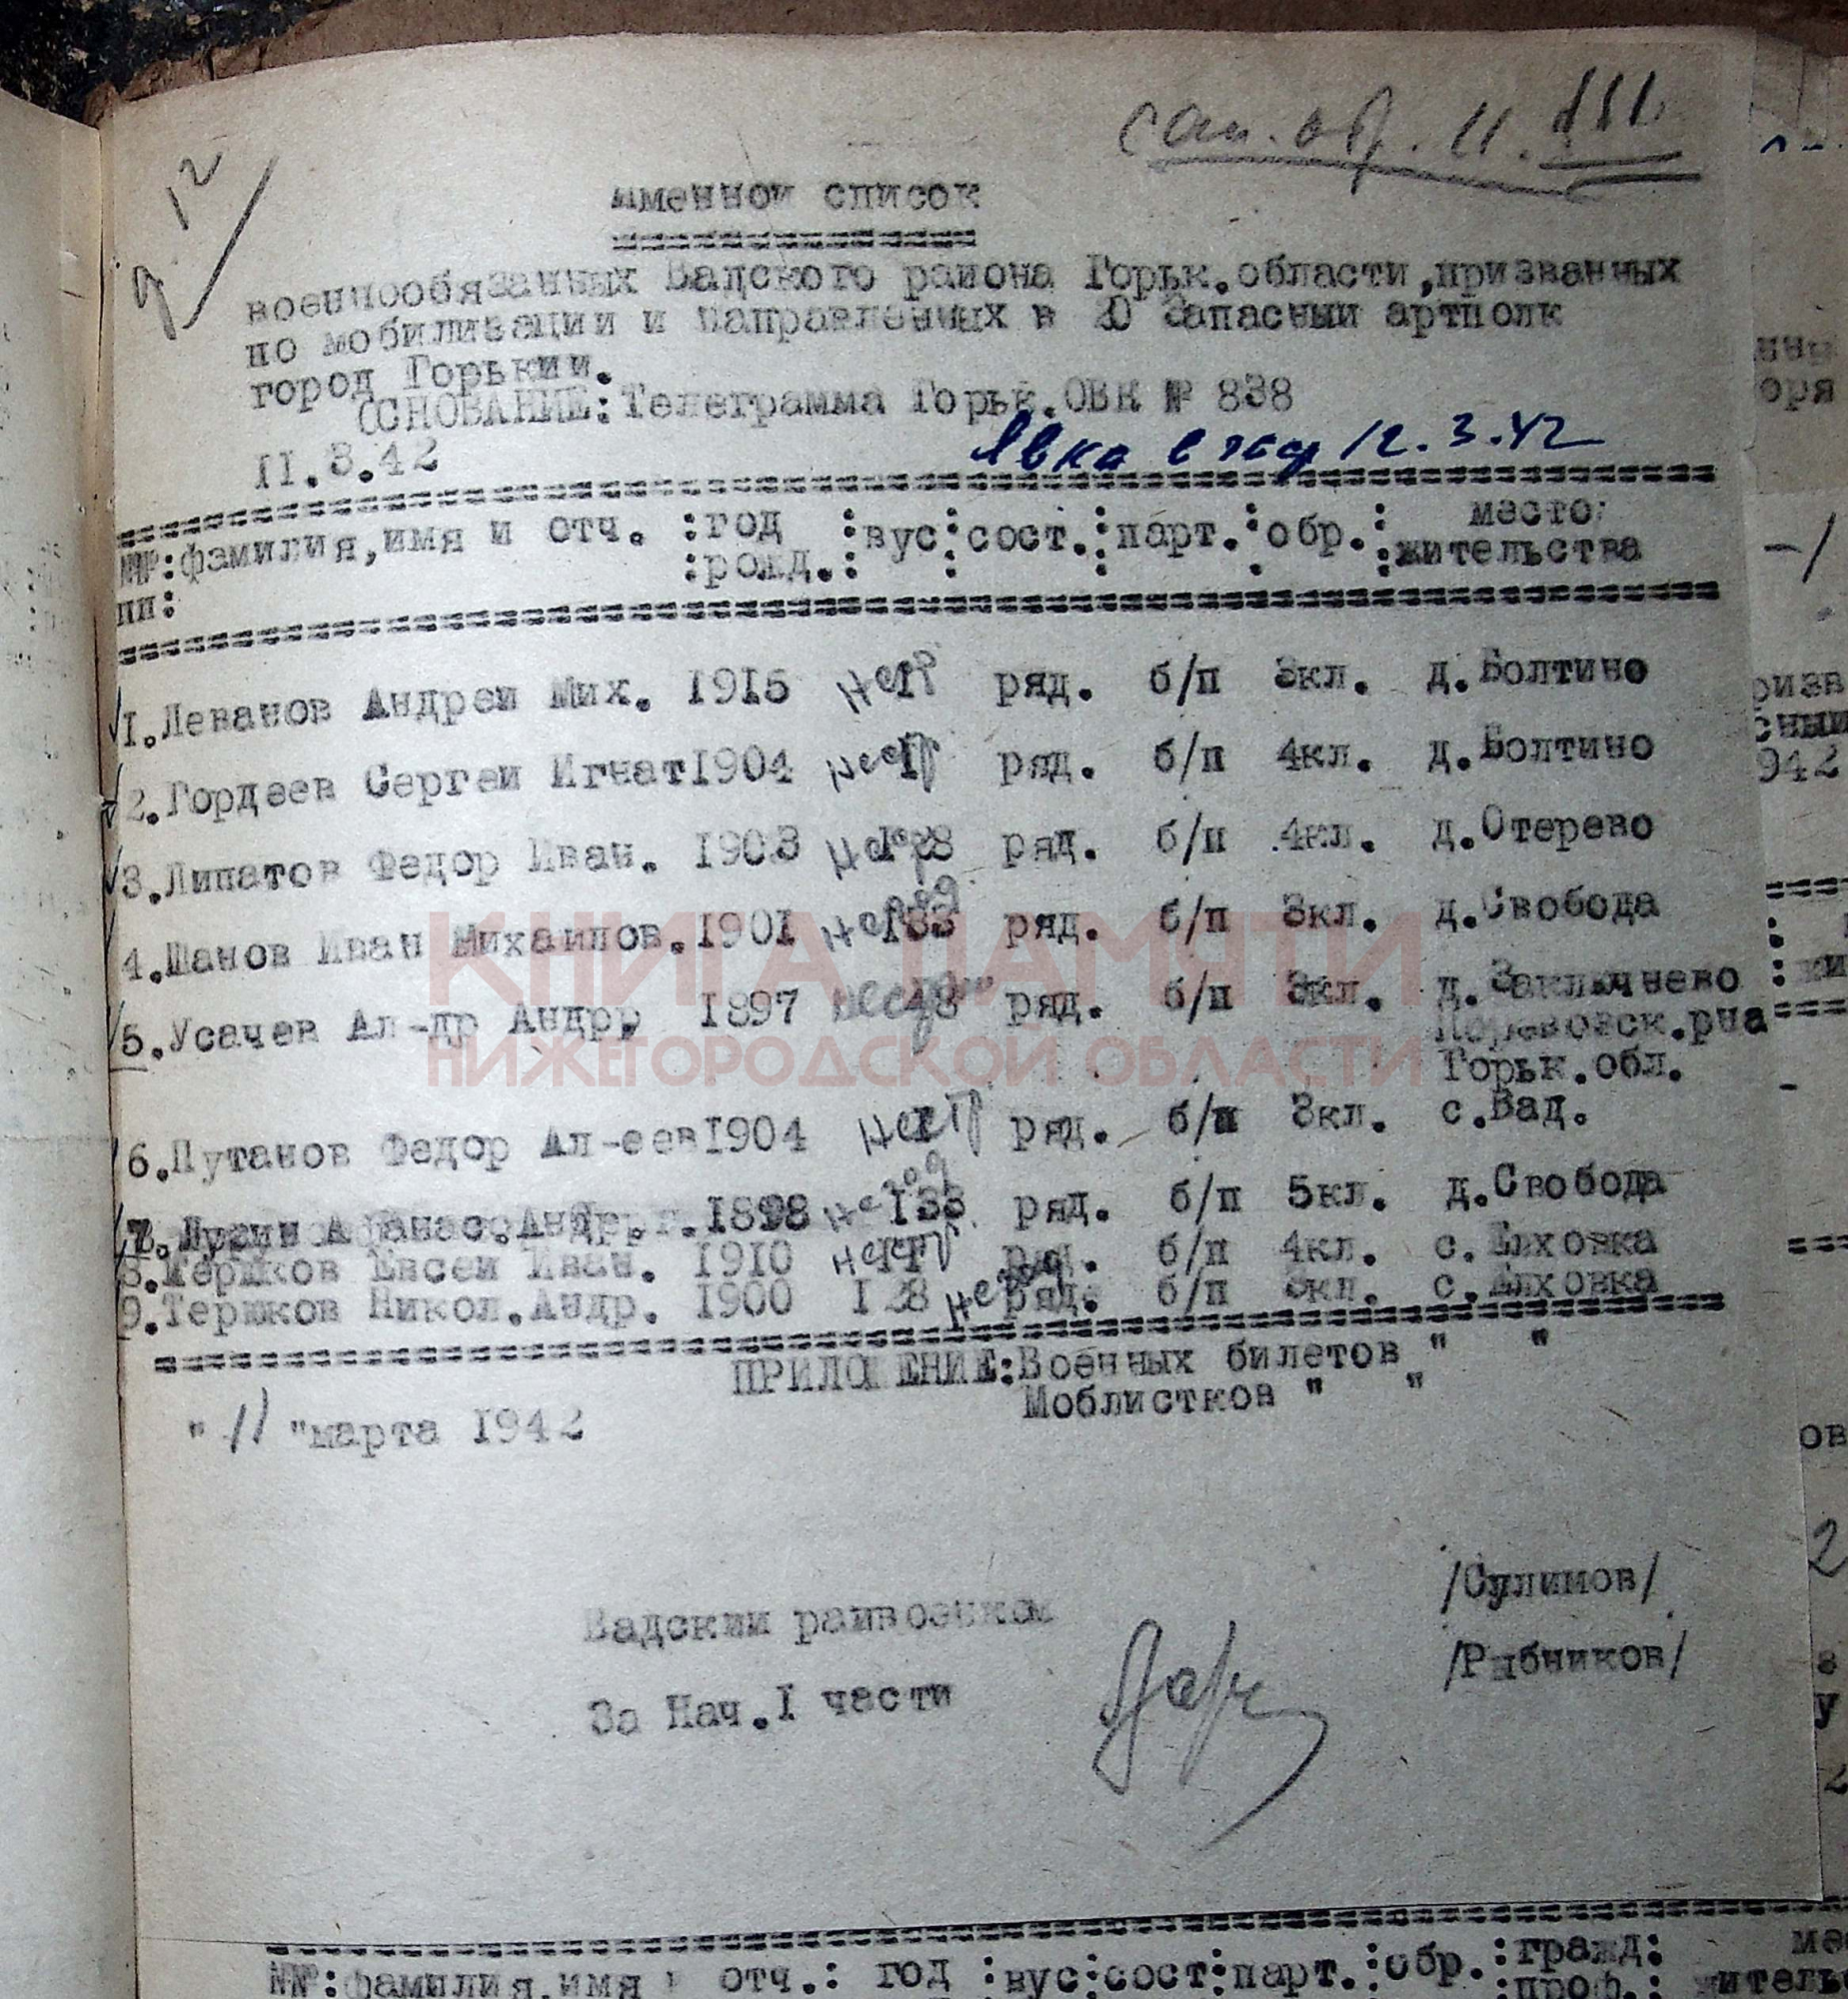 12
Именной список
военнообязанных Вадского района Горьк.области,призванных
по мобилизации и направленных в 20 Запасный артполк
город Горький.
ОСНОВАНИЕ:Телеграмма Горьк.ОВК № 838
11.3.42
Явка в 12.3.42
№№:фамилия,имя и отч. :год :вус:сост.:парт.:обр.: место
пп: :рожд.: :жительства
1.Леванов Андрей Мих. 1915 ряд. б/п 3кл. д.Болтино
2.Гордеев Сергей Игнат1904 ряд. б/п 4кл. д.Болтино
3.Липатов Федор Иван. 1903 128 ряд. б/п 4кл. д.Отерево
4.Шанов Иван Михайлов.1901 133 ряд. б/п 3кл. д.Свобода
5.Усачев Ал-др Андр 1897 48 ряд. б/п 3кл. д.Заключнево
Перевозск.рна
Горьк.обл.
6.Путанов Федор Ал-еев1904 ряд. б/п 3кл. с.Вад.
7. 1898 133 ряд. б/п 5кл. д.Свобода
8.Терюков Евсей Иван. 1910 ряд. б/п 4кл. с.Елховка
9.Терюков Никол.Андр. 1900 128 ряд. б/п 3кл. с.Елховка
ПРИЛОЖЕНИЕ:Военных билетов " "
Моблистков " "
" 11 "марта 1942
Вадский райвоенком /Сулимов/
За Нач.1 части /Рыбников/
КНИГА ПАМЯТИ
НИЖЕГОРОДСКОЙ ОБЛАСТИ
№№:фамилия,имя и отч.: год :вус:сост:парт.:обр.:гражд:
:проф.: